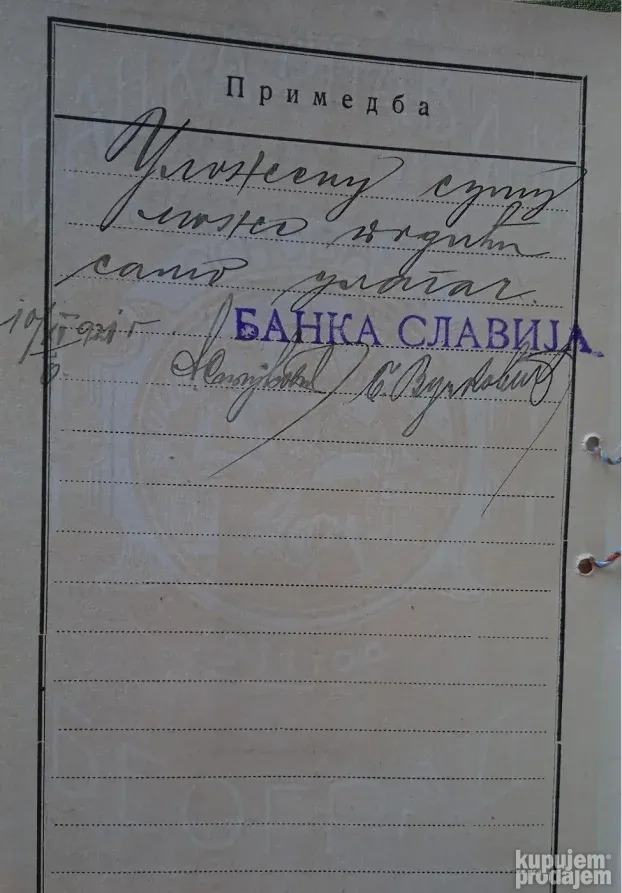 Примедба
Уложену суму
може подићи
само улагач.
10/II 921 г.
Б.
БАНКА СЛАВИЈА.
С. Вучковић
kupujem
prodajem